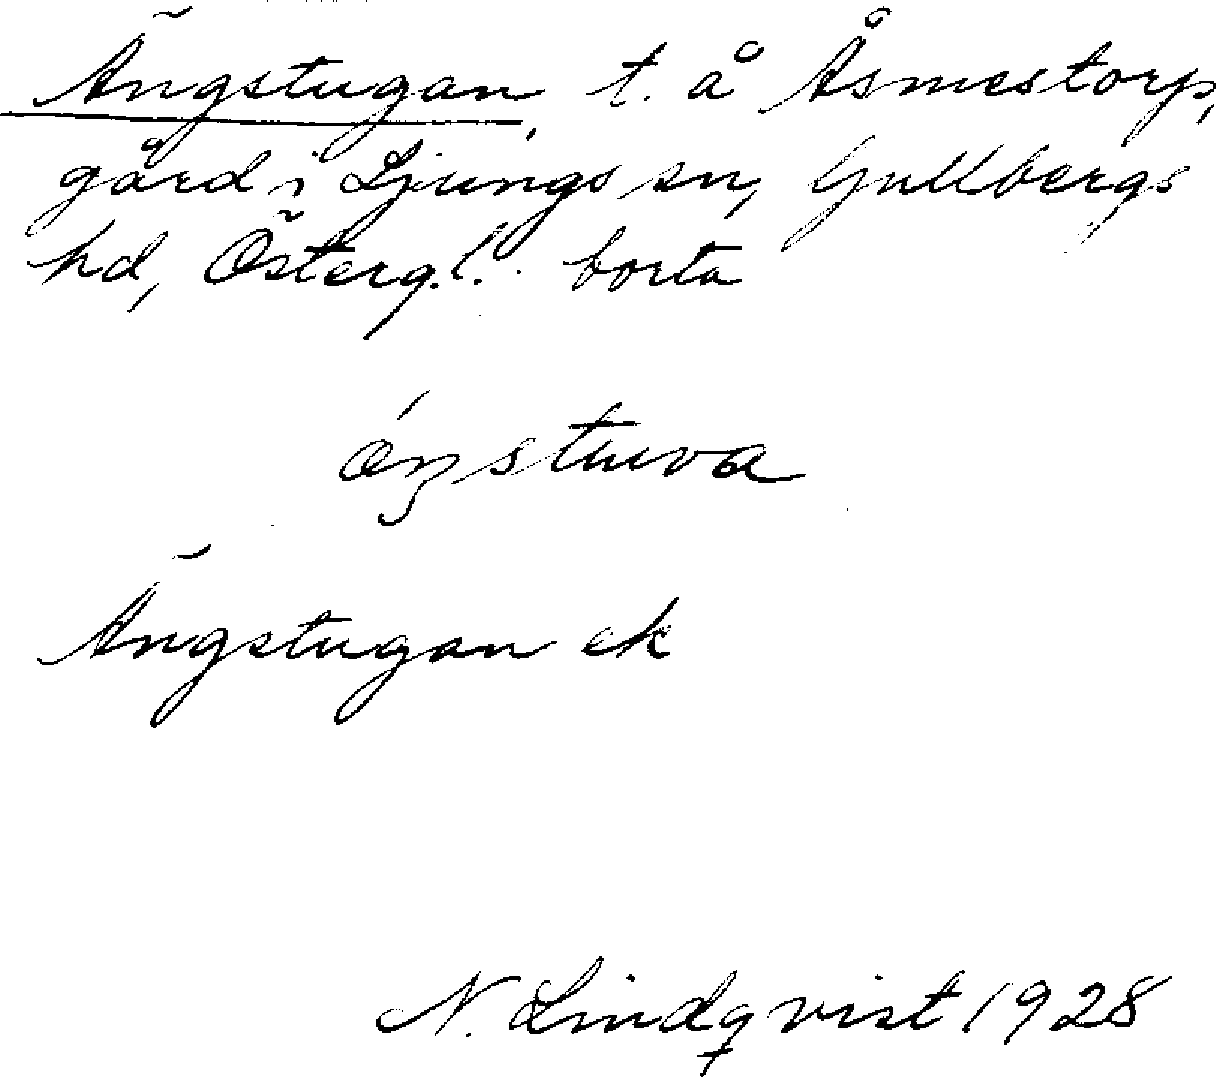 Ängstugan, t. å Åsmestorp,
gård i Ljungs sn, Gullbergs
hd, Österg.l. borta
ǿŋstuva
Ängstugan ek
N. Lindqvist 1928